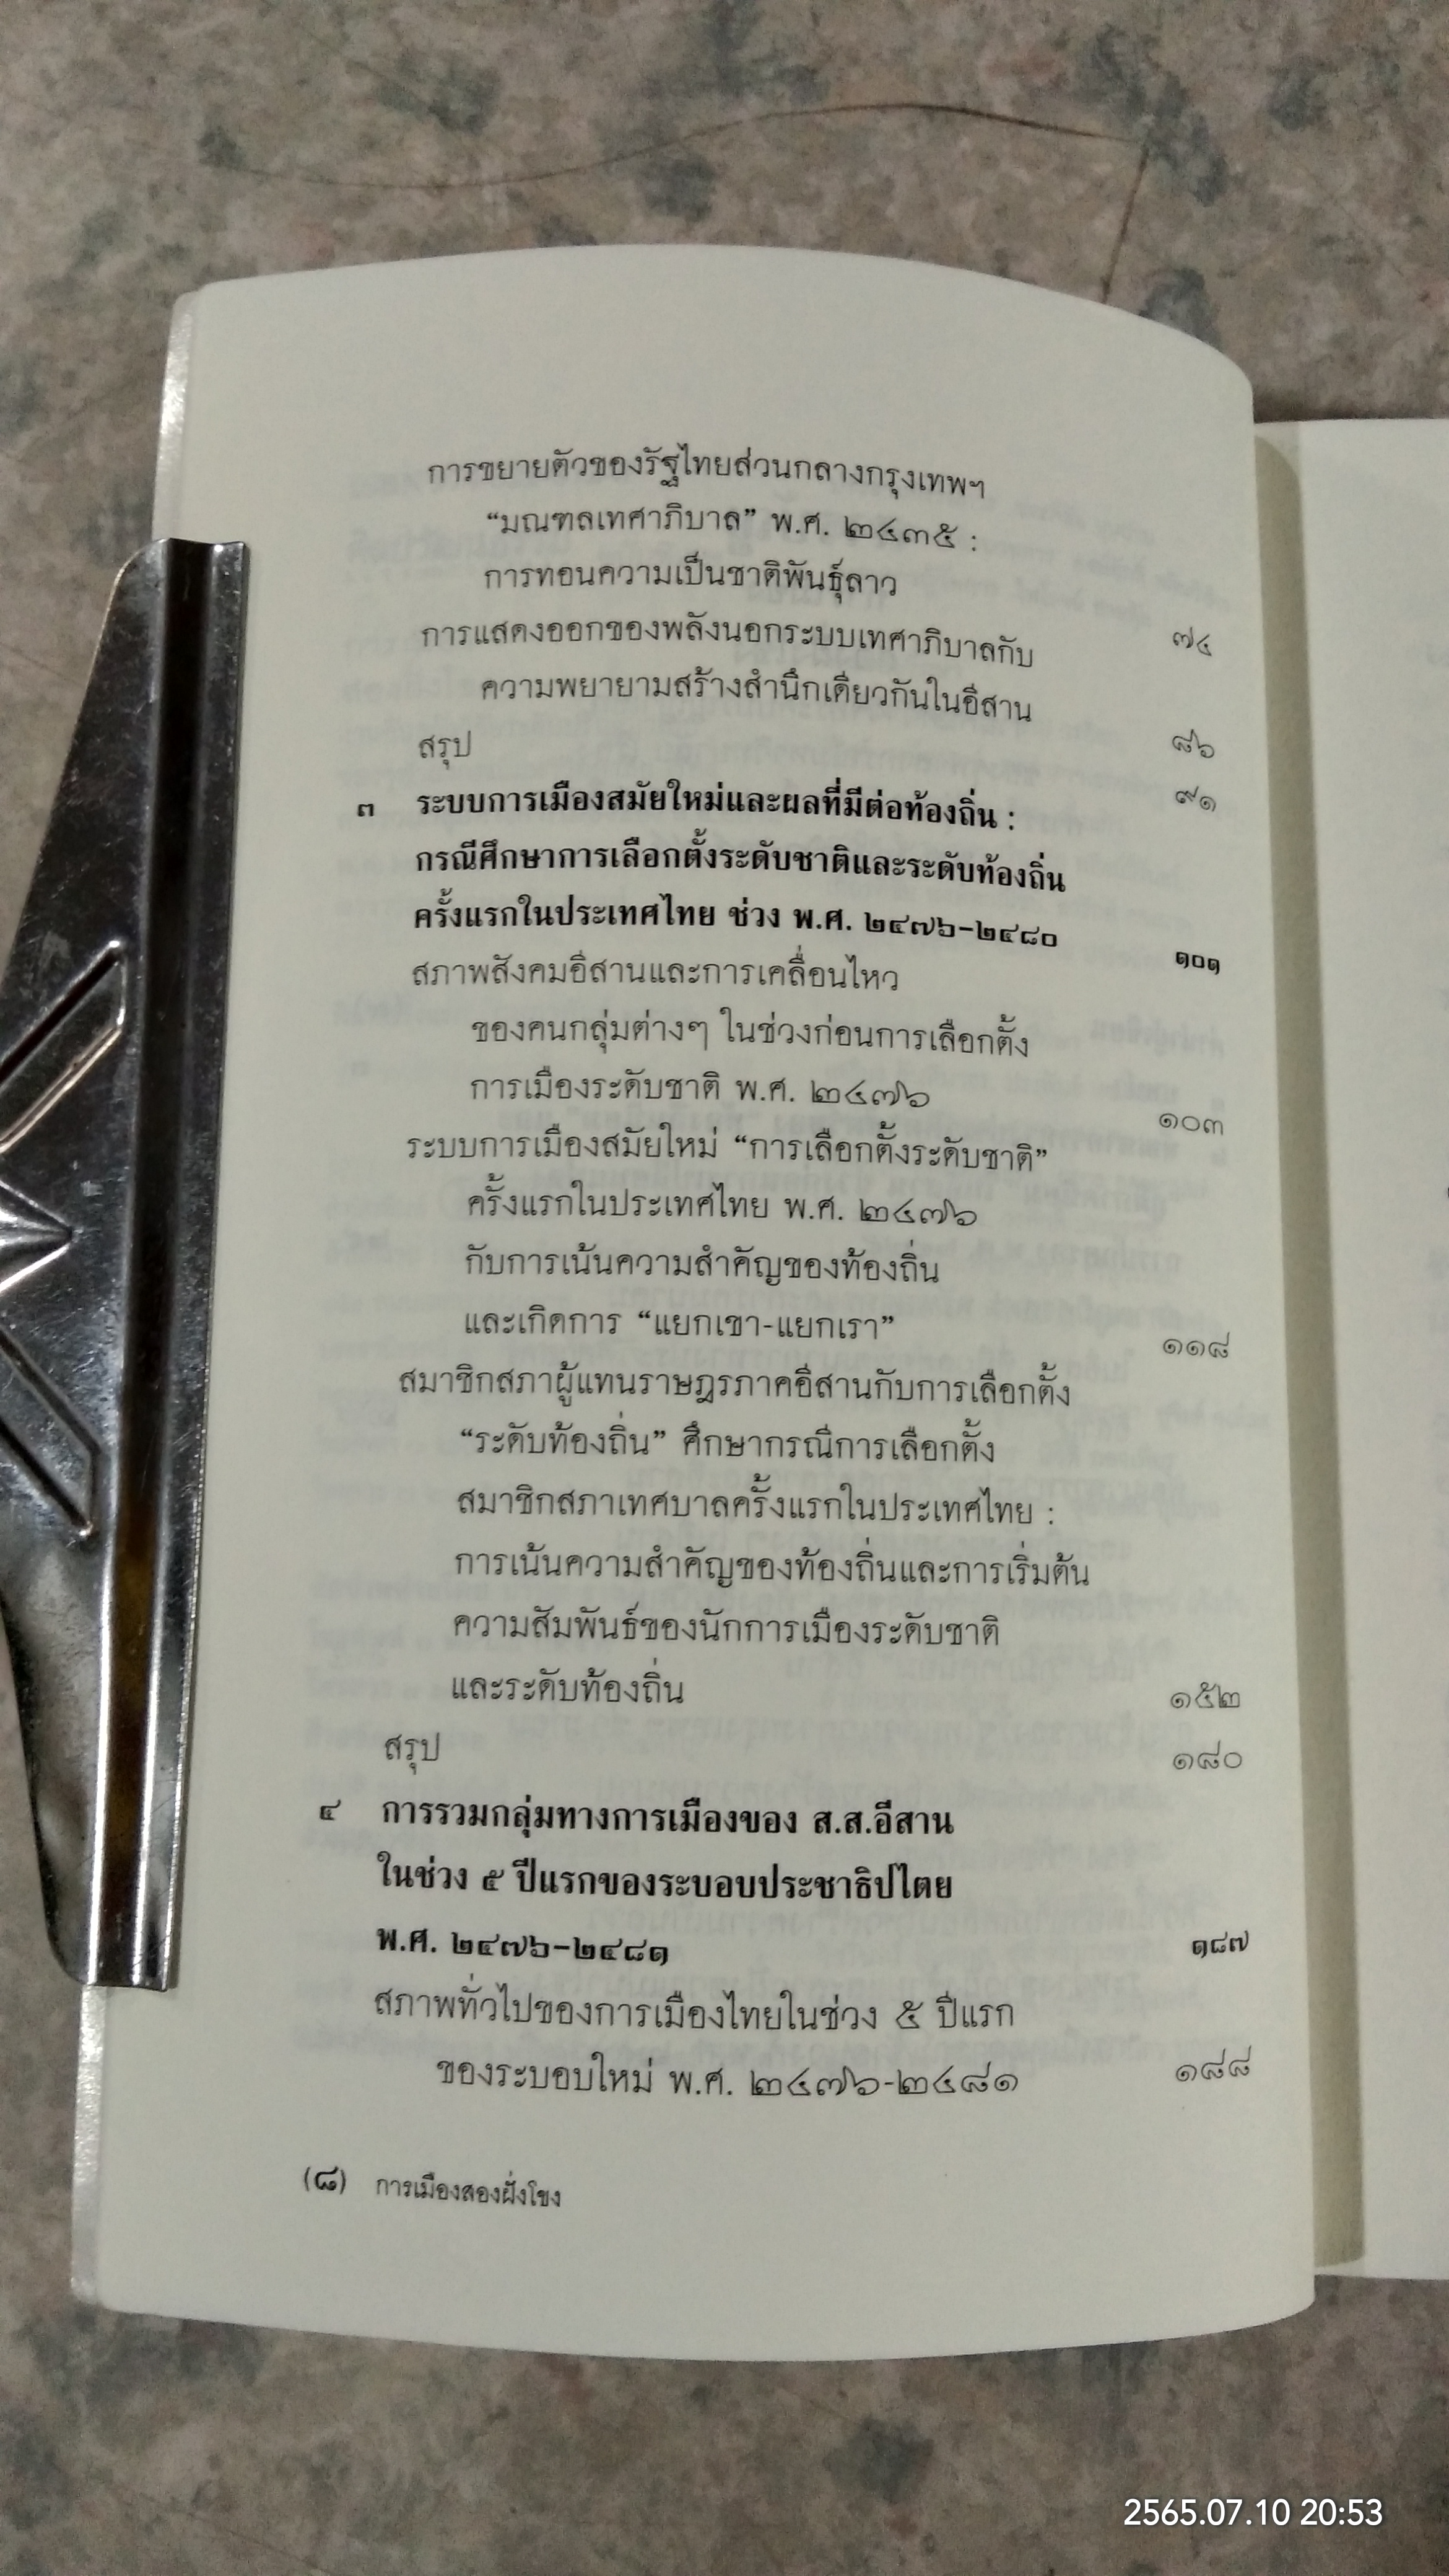 การขยายตัวของรัฐไทยส่วนกลางกรุงเทพฯ
“มณฑลเทศาภิบาล” พ.ศ. ๒๔๓๕ :
การทอนความเป็นชาติพันธุ์ลาว ๗๔
การแสดงออกของพลังนอกระบบเทศาภิบาลกับ
ความพยายามสร้างสำนึกเดียวกันในอีสาน ๘๖
สรุป ๙๑
๓ ระบบการเมืองสมัยใหม่และผลที่มีต่อท้องถิ่น :
กรณีศึกษาการเลือกตั้งระดับชาติและระดับท้องถิ่น
ครั้งแรกในประเทศไทย ช่วง พ.ศ. ๒๔๗๖-๒๔๘๐ ๑๐๑
สภาพสังคมอีสานและการเคลื่อนไหว
ของคนกลุ่มต่างๆ ในช่วงก่อนการเลือกตั้ง
การเมืองระดับชาติ พ.ศ. ๒๔๗๖ ๑๐๓
ระบบการเมืองสมัยใหม่ “การเลือกตั้งระดับชาติ”
ครั้งแรกในประเทศไทย พ.ศ. ๒๔๗๖
กับการเน้นความสำคัญของท้องถิ่น
และเกิดการ “แยกเขา-แยกเรา” ๑๑๘
สมาชิกสภาผู้แทนราษฎรภาคอีสานกับการเลือกตั้ง
“ระดับท้องถิ่น” ศึกษากรณีการเลือกตั้ง
สมาชิกสภาเทศบาลครั้งแรกในประเทศไทย :
การเน้นความสำคัญของท้องถิ่นและการเริ่มต้น
ความสัมพันธ์ของนักการเมืองระดับชาติ
และระดับท้องถิ่น ๑๕๒
สรุป ๑๘๐
๔ การรวมกลุ่มทางการเมืองของ ส.ส.อีสาน
ในช่วง ๕ ปีแรกของระบอบประชาธิปไตย
พ.ศ. ๒๔๗๖-๒๔๘๑ ๑๘๗
สภาพทั่วไปของการเมืองไทยในช่วง ๕ ปีแรก
ของระบอบใหม่ พ.ศ. ๒๔๗๖-๒๔๘๑ ๑๘๘
(๘) การเมืองสองฝั่งโขง
2565.07.10 20:53